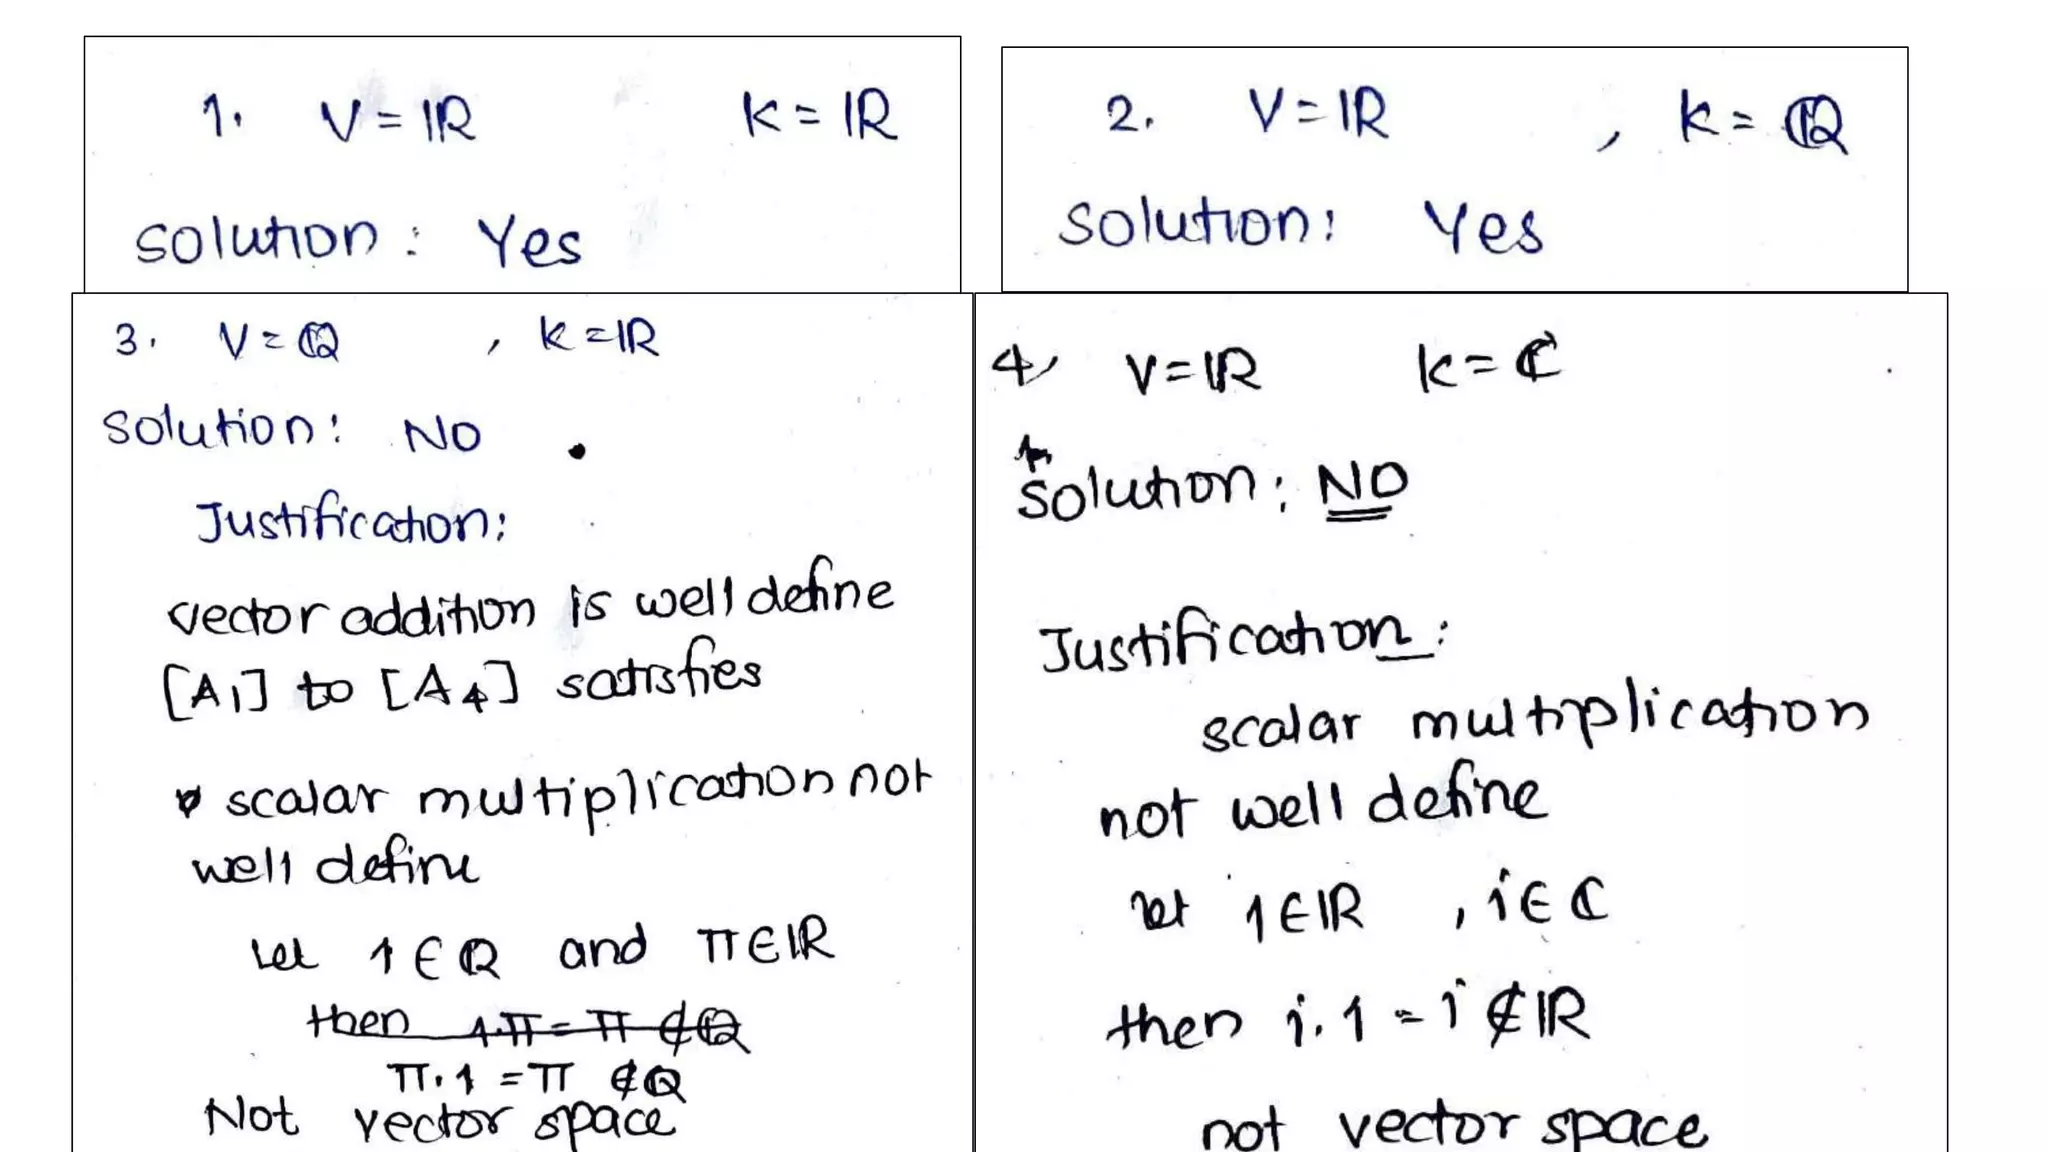 1. V = ℝ K = ℝ
Solution: Yes
2. V = ℝ , K = ℚ
Solution: Yes
3. V = ℚ , K = ℝ
Solution: NO
Justification:
vector addition is well define
[A1] to [A4] satisfies
scalar multiplication not
well define
Let 1 ∈ ℚ and π ∈ ℝ
then 1.π = π ∉ ℚ
π.1 = π ∉ ℚ
Not vector space
4, V = ℝ K = ℂ
Solution: NO
Justification:
scalar multiplication
not well define
let 1 ∈ ℝ , i ∈ ℂ
then i.1 = i ∉ ℝ
not vector space